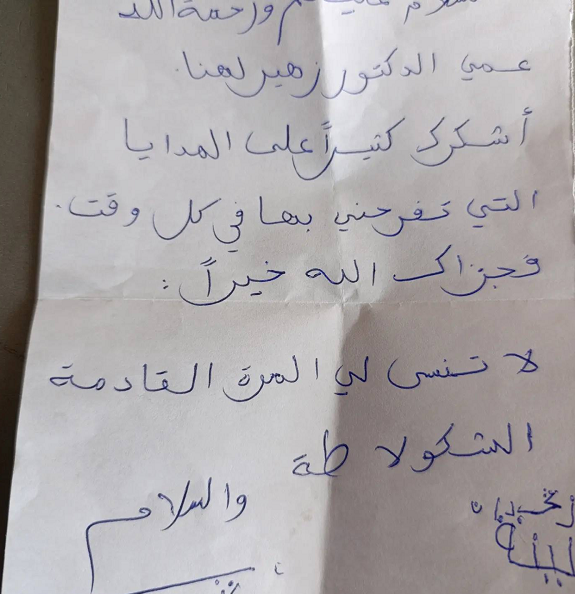 السلام عليكم ورحمة الله
عمي الدكتور زهير لهنا.
أشكرك كثيراً على الهدايا
التي تفرحني بها في كل وقت.
فجزاك الله خيراً:
لا تنسى لي المرة القادمة
الشكولاطة
والسلام